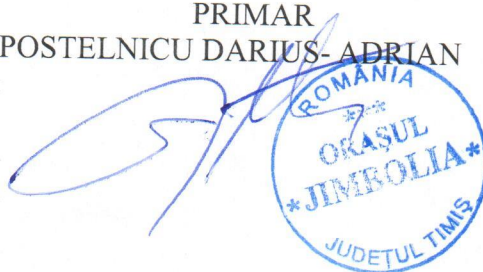 PRIMAR
POSTELNICU DARIUS- ADRIAN
ROMÂNIA
***
ORAȘUL
*JIMBOLIA*
JUDEȚUL TIMIȘ